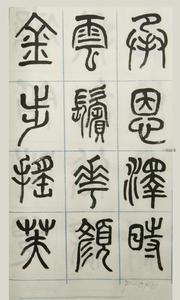 承恩澤時
雲鬢花顏
金步搖芙